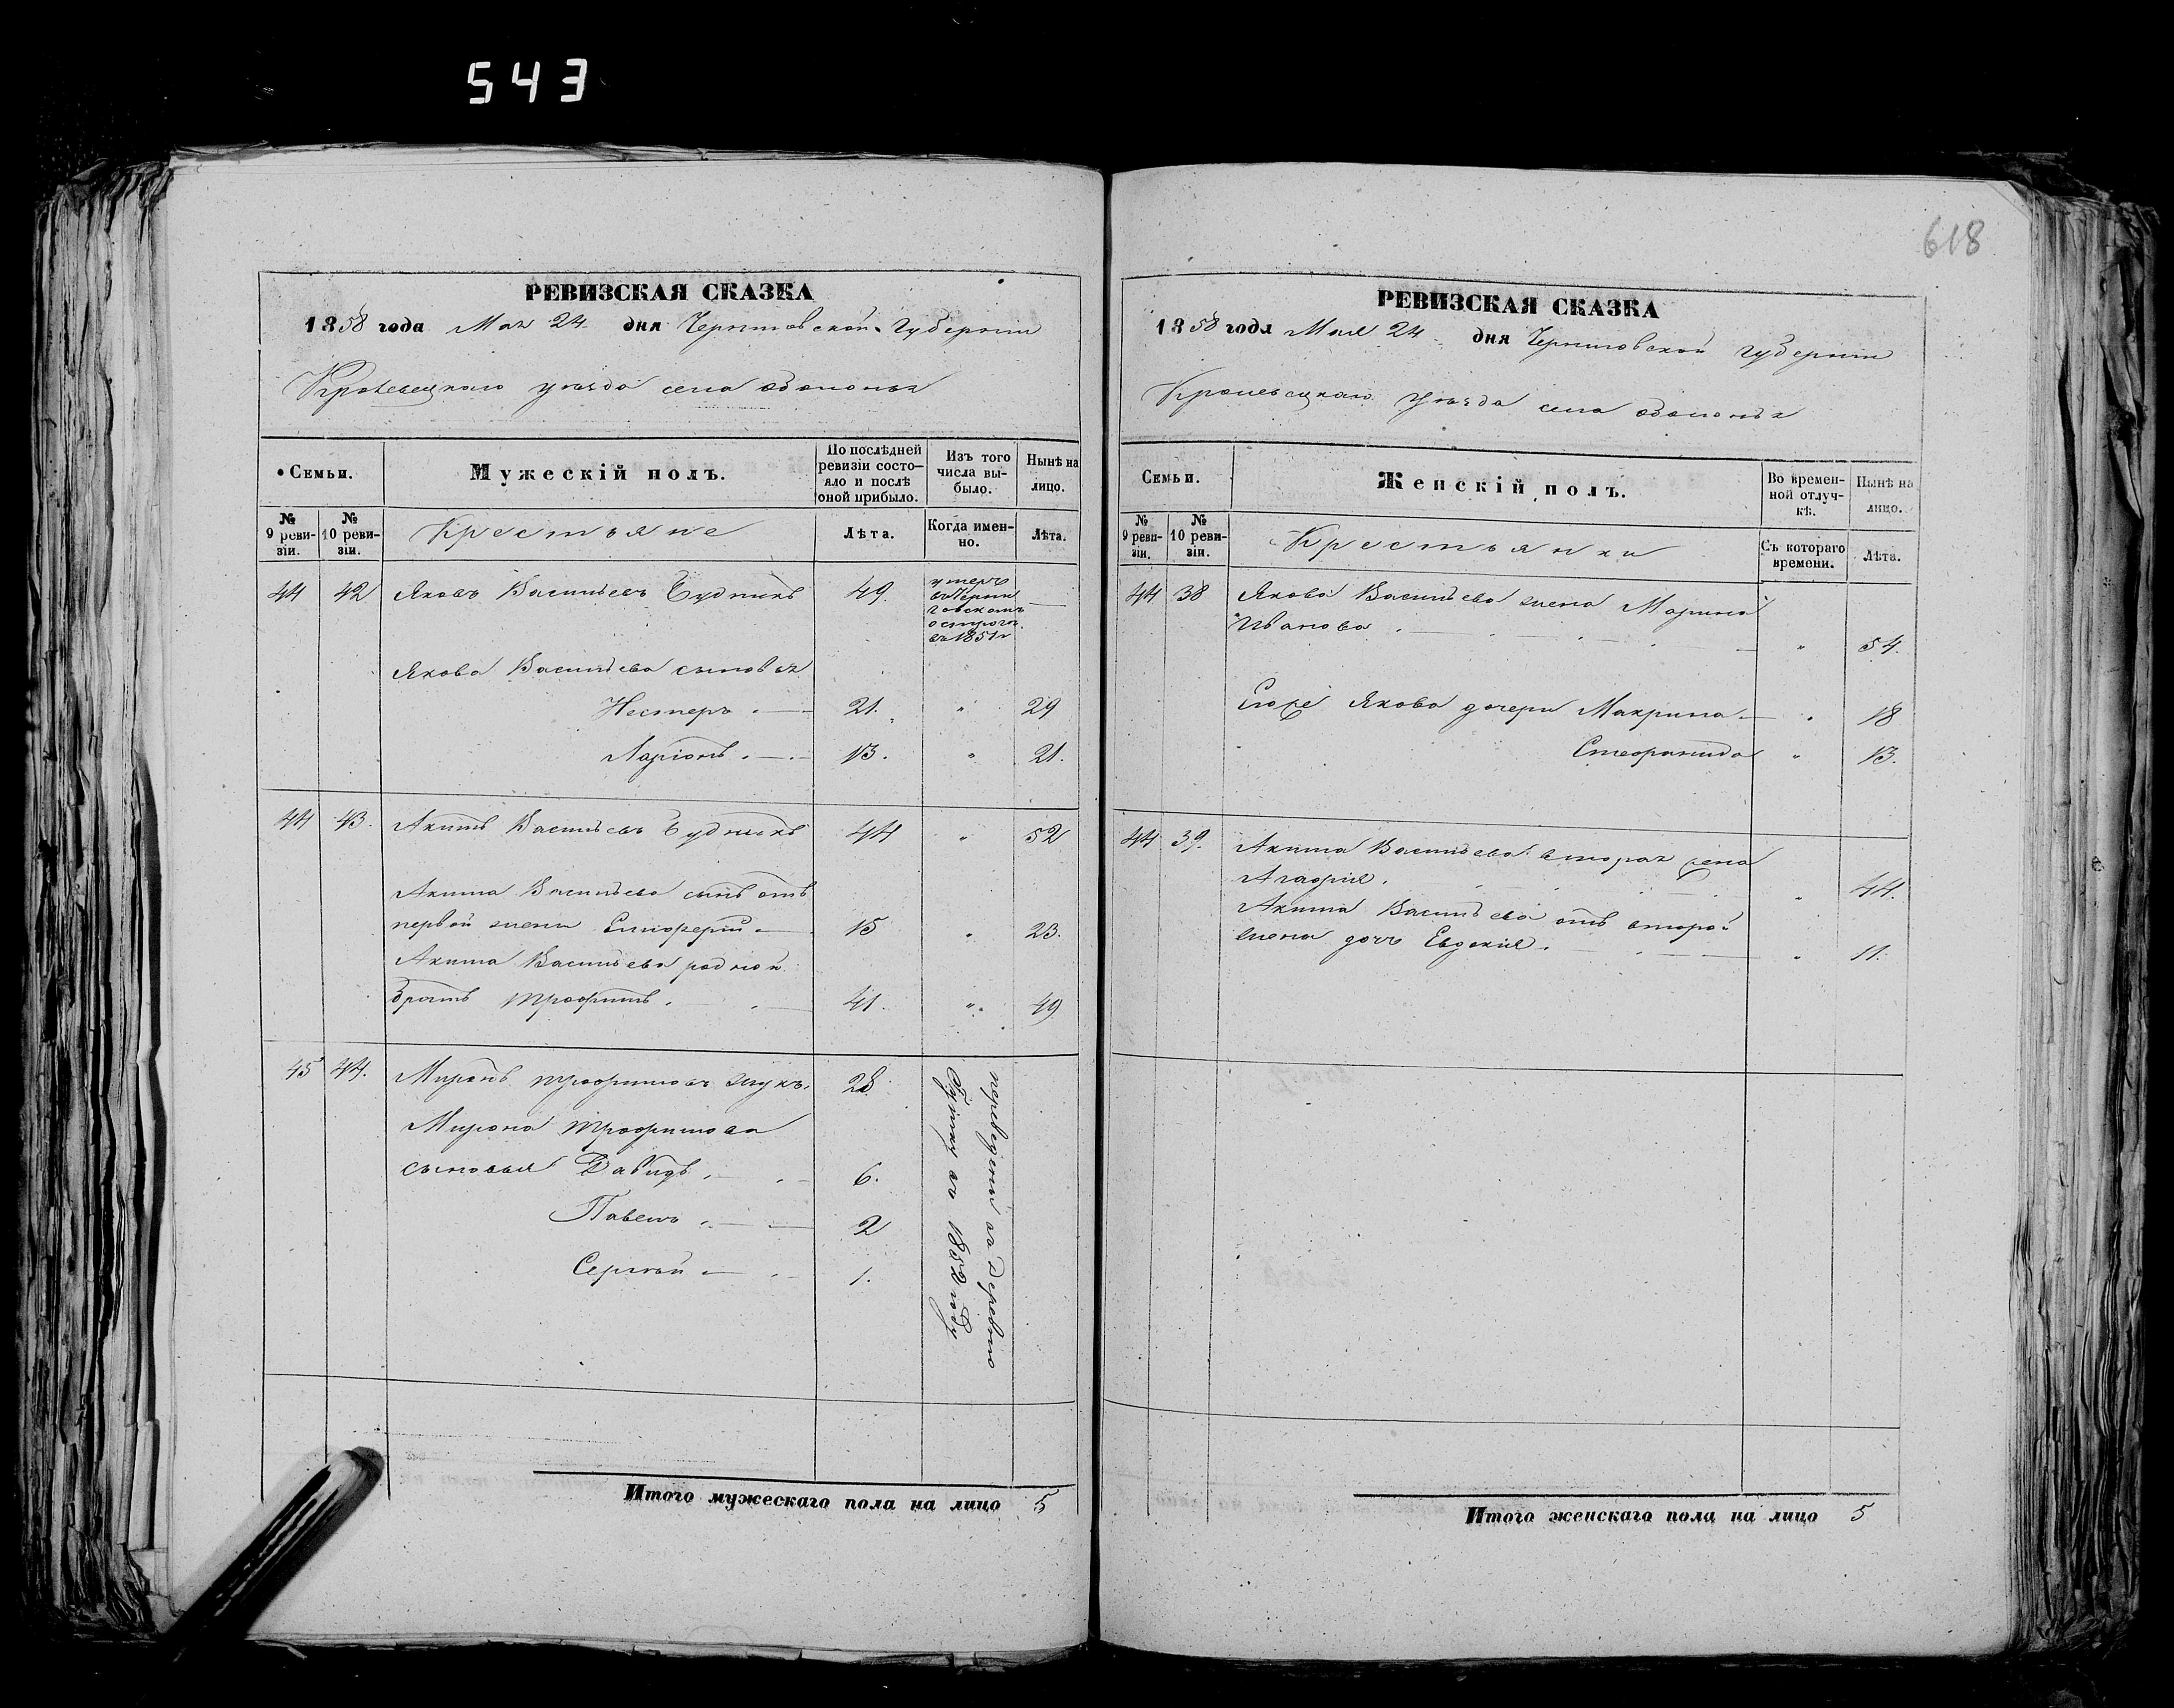 543
618
РЕВИЗСКАЯ СКАЗКА
1858 года Мая 24 дня Черниговской Губернии
Кролевецкаго уѣзда села Обложокъ
• Семьи.
Мужескій полъ.
По послѣдней ревизіи состояло и послѣ оной прибыло.
Изъ того числа выбыло.
Нынѣ на лицо.
№ 9 ревизіи.
№ 10 ревизіи.
Крестьяне
Лѣта.
Когда именно.
Лѣта.
44 42 Яковъ Васильевъ Будникъ 49. умеръ
въ Черни
говскомъ
острогѣ
въ 1851 г
Якова Васильева сыновья
Несторъ . — 21. " 29
Ларіонъ . — 13. " 21.
44 43. Акимъ Васильевъ Будникъ 44 " 52
Акима Васильева сынъ отъ
первой жены Елиферій — 15 " 23.
Акима Васильева родной
братъ Трофимъ . 41. " 49
45 44. Миронъ Трофимовъ Жукъ. 28.
Мирона Трофимова
сыновья Давидъ . 6.
Павелъ . — 2
Сергѣй — 1.
переведены въ Деревню
въ 1852 году
Итого мужескаго пола на лицо 5
РЕВИЗСКАЯ СКАЗКА
1858 года Мая 24 дня Черниговской Губерніи
Кролевецкаго Уѣзда села
Семьи.
Женскій полъ.
Во временной отлучкѣ.
Нынѣ на лицо.
№ 9 ревизіи.
№ 10 ревизіи.
Крестьянки
Съ котораго времени.
Лѣта.
44 38 Якова Васильева жена Марина
Иванова . " 54.
Якова дочери Макрина — " 18
Стефанида " 13.
44 39. Акима Васильева вторая жена
Агафія. " 44.
Акима Васильева отъ второй
жены дочь Евдокія. " 11.
Итого женскаго пола на лицо 5